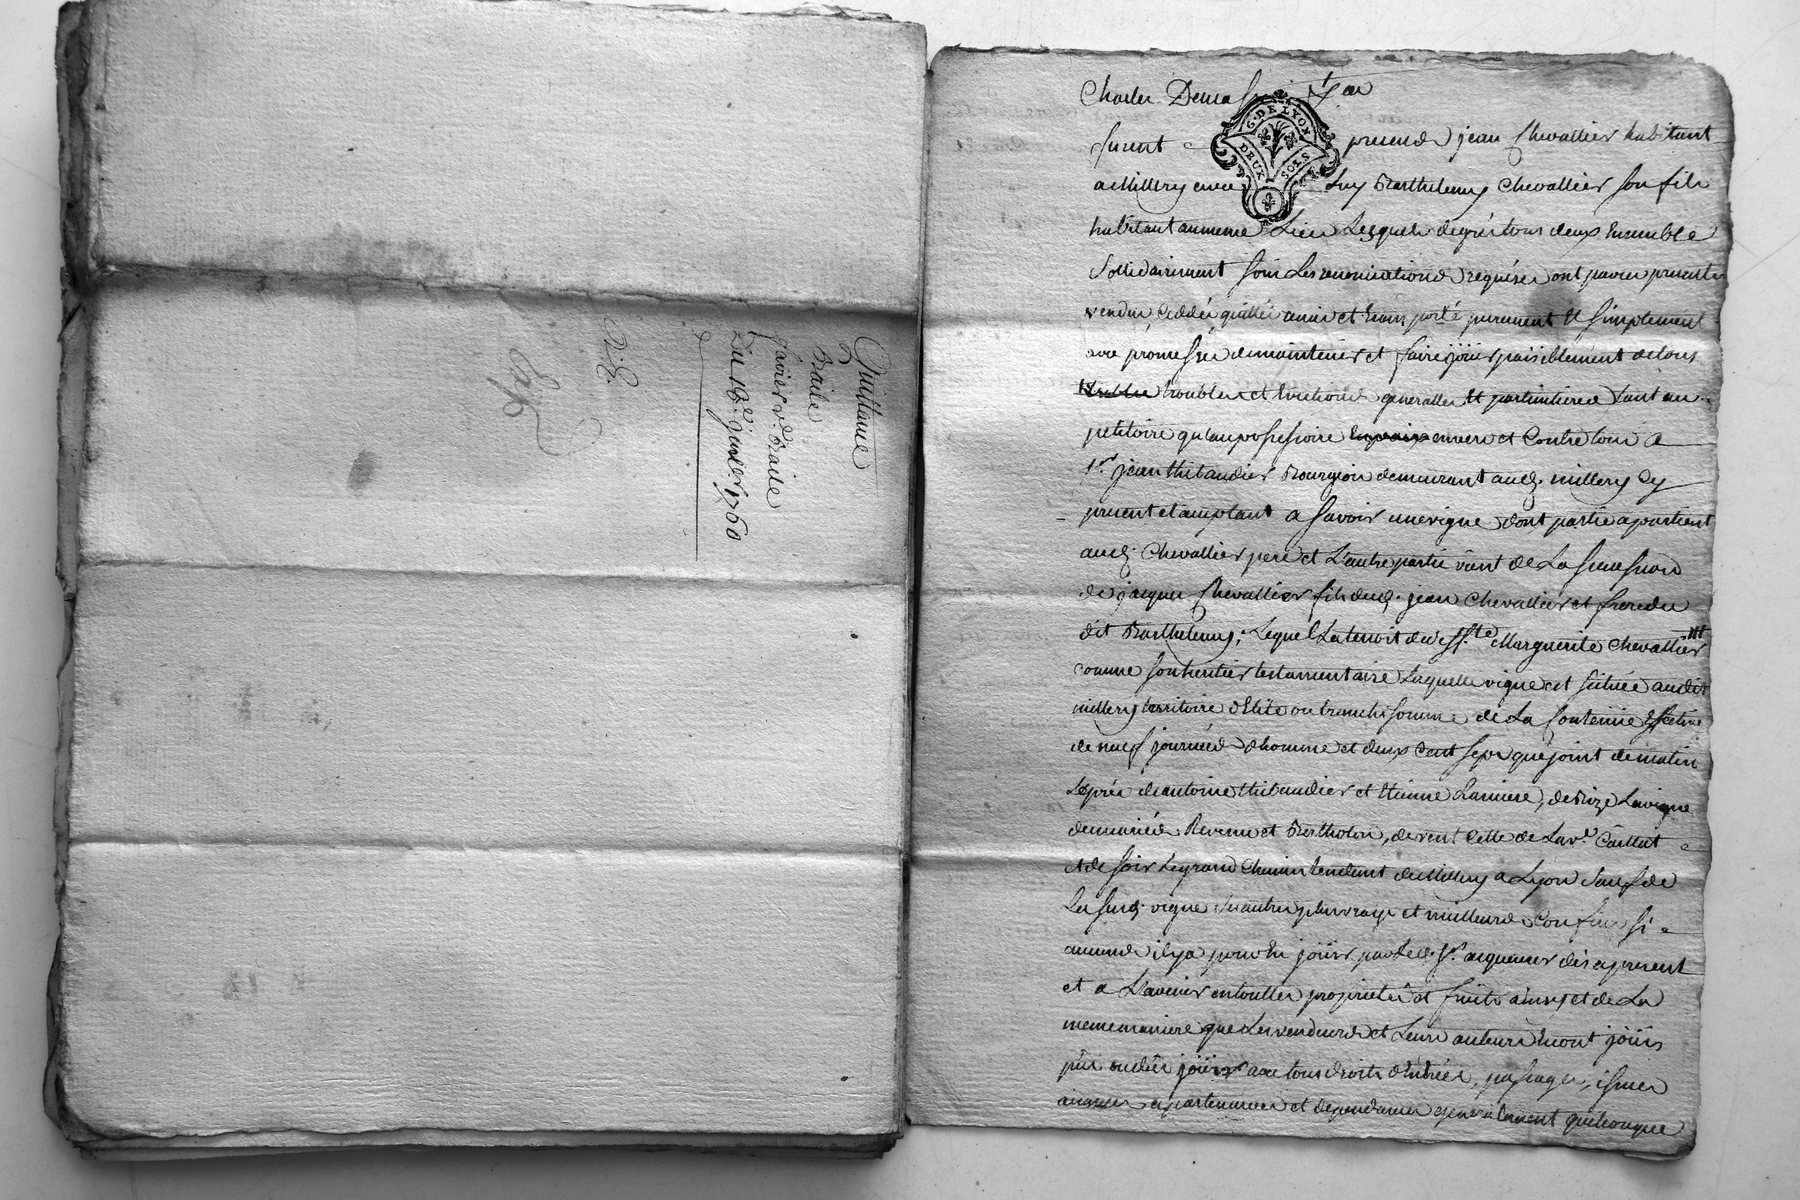 Quittance
Baile
Xavier vd. Baile
Du 18e. janvier 1760
G. DE LYON
DEUX SOLS
furent presend jean Chevallier habitant
a Millery avec Luy Barthelemy Chevallier son fils
habitant au meme Lieu Lesquels de gré tous deux ensemble
Sollidairement sous Les renonciations requises ont par ces presentes
vendu ceddés quittés remis et transporté purement et simplement
avec promesse de maintenir et faire joüir paisiblement de tous
troubles et evictions generalles et particulieres tant au
petitoire qu'au possessoire envers et Contre tous a
Sr. jean thibaudier Bourgeois demeurant aud. millery cy
present et acceptant a savoir une vigne dont partie apartient
aud. Chevallier pere et L'autre partie vient de La succession
de jacques Chevallier fils dud. jean Chevallier et frere du
dit Barthelemy, Lequel La tenoit de Marguerite Chevallier
comme son heritier testamentaire Laquelle vigne est scituée audit
millery territoire de La Contenüe
de neuf journées d'homme et deux Cent joint de matin
Les prés de antoine thibaudier et Etienne de Bize La vigne
des mariés Revenu et Bertholon, de vent Celle de La ve.
et de soir Le grand Chemin tendant de Millery a Lyon Sauf de
La sud. vigne ses autres plus vrays et meilleurs Confins si
aucuns il y a pour en joüir par Led. Sr. acquereur dès a present
et a L'avenir en touttes proprietés et fruits et de La
meme maniere que Les vendeurs et Leurs auteurs en ont joüis
pû ou dû joüir avec tous droits d'entrées, passages, issues
aisances apartenances et dependances generalement quelconques